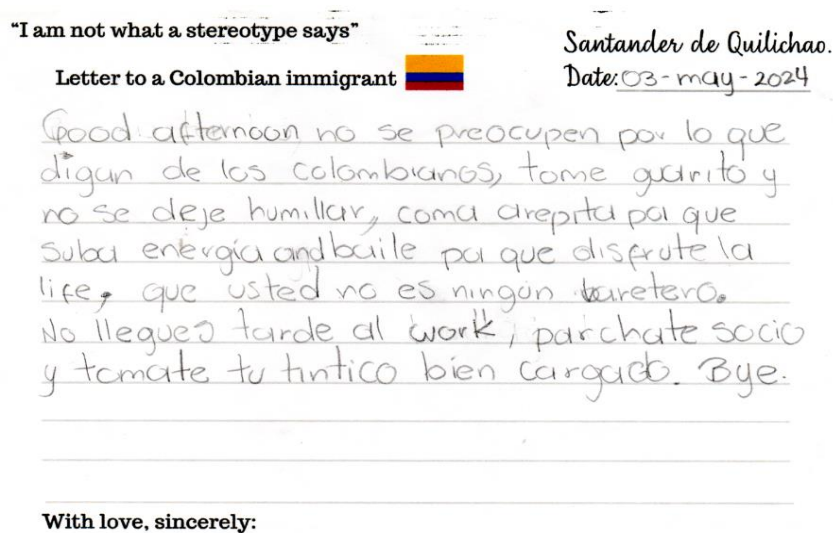 “I am not what a stereotype says”
Santander de Quilichao.
Letter to a Colombian immigrant
Date: 03-may-2024
Good afternoon no se preocupen por lo que
digan de los colombianos, tome guarito y
no se deje humillar, coma arepita pa que
suba energía and baile pa que disfrute la
life, que usted no es ningún baretero.
No llegues tarde al work, parchate socio
y tomate tu tintico bien cargado. Bye.
With love, sincerely: